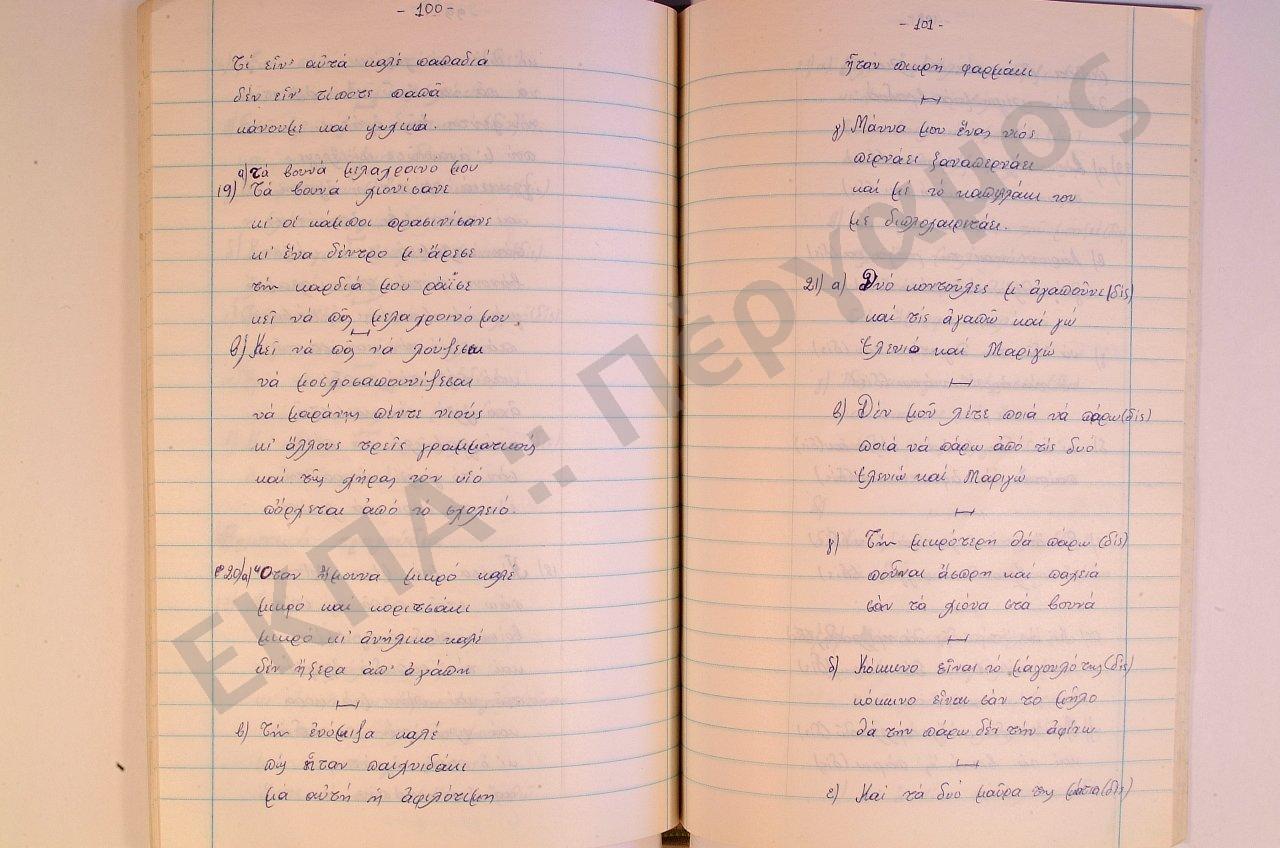 - 100 -
Τί εἶν' αὐτά καλέ παπαδιά
δέν εἶν' τίποτε παπᾶ
κάνουμε καί γλυκά.
α) Τά βουνά μελαχροινό μου
19) Τά βουνά χιονίσανε
κι' οἱ κάμποι πρασινίσανε
κι' ἕνα δέντρο μ' ἄρεσε
τήν καρδιά μου ράϊσε
κεῖ νά πᾶς μελαχροινό μου.
β) Κεῖ νά πᾶς νά λούζεσαι
νά μοσχοσαπουνίζεσαι
νά μαράνῃς πέντε νιούς
κι' ἄλλους τρεῖς γραμματικούς
καί τῆς χήρας τόν υἱό
πὄρχεται ἀπό τό σχολειό.
20) α) Ὅταν ἤμουνα μικρό καλέ
μικρό καί κοριτσάκι
μικρό κι' ἀνήλικο καλέ
δέν ἤξερα ἀπ' ἀγάπη
β) Τήν ἐνόμιζα καλέ
πώς ἦταν παιχνιδάκι
μά αὐτή ἡ ἀφιλότιμη
- 101 -
ἦταν πικρή φαρμάκι
γ) Μάννα μου ἕνας νιός
περνάει ξαναπερνάει
καί μέ τό καπελλάκι του
μέ διπλοχαιρετάει.
21) α) Δυό κοντοῦλες μ' ἀγαποῦνε (δίς)
καί τίς ἀγαπῶ καί γώ
Ἑλενιώ καί Μαριγώ
β) Δέν μοῦ λέτε ποιά νά πάρω (δίς)
ποιά νά πάρω ἀπό τίς δυό
Ἑλενιώ καί Μαριγώ
γ) Τήν μικρότερη θά πάρω (δίς)
ποὖναι ἄσπρη καί παχειά
σάν τά χιόνα στά βουνά
δ) Κόκκινο εἶναι τό μάγουλό της (δίς)
κόκκινο εἶναι σάν τό μῆλο
θά τήν πάρω δέν τήν ἀφίνω
ε) Καί τά δυό μαῦρα της μάτια (δίς)
ΕΚΠΑ :: Πέργαμος